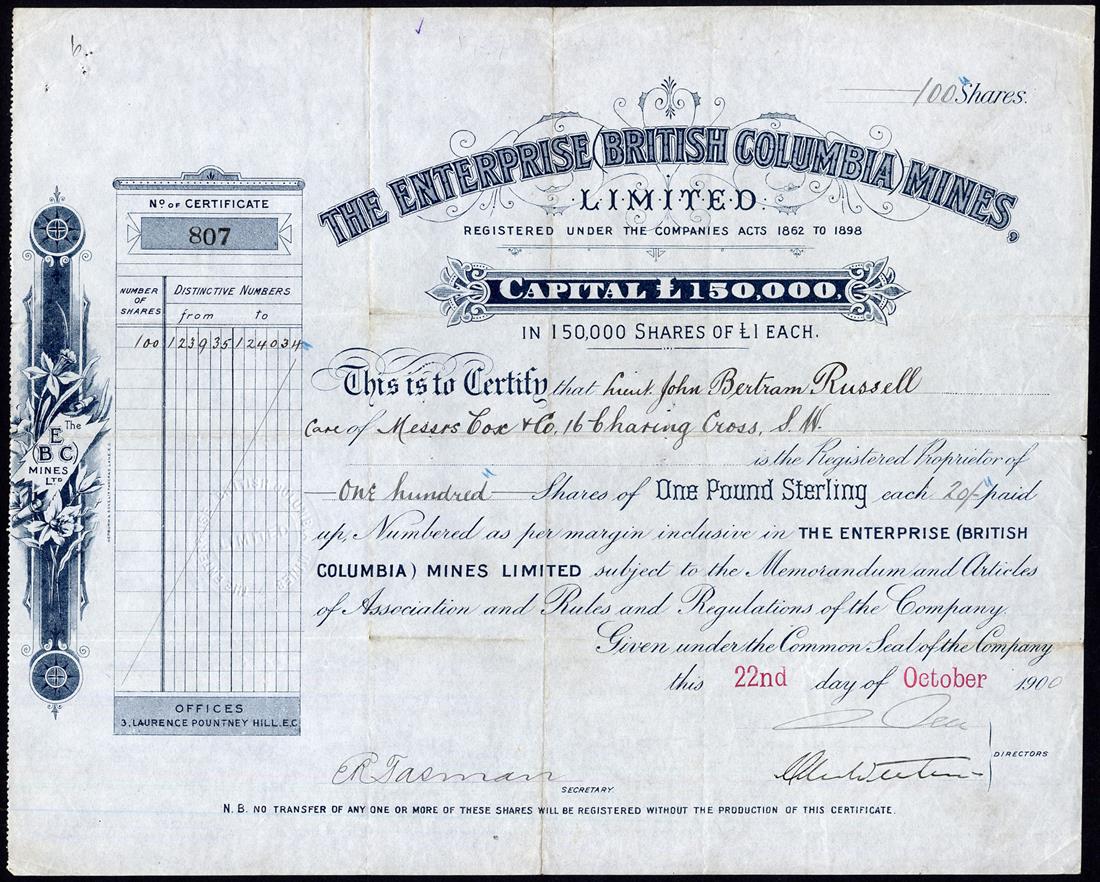 100 Shares.
THE ENTERPRISE (BRITISH COLUMBIA) MINES,
LIMITED
REGISTERED UNDER THE COMPANIES ACTS 1862 TO 1898
CAPITAL £150,000,
IN 150,000 SHARES OF £1 EACH.
No OF CERTIFICATE
807
NUMBER OF SHARES DISTINCTIVE NUMBERS
from to
100 123935 124034
The
E
(B C)
MINES
LTD
OFFICES
3, LAURENCE POUNTNEY HILL, E.C.
This is to Certify that Lieut. John Bertram Russell
Care of Messrs Cox & Co, 16 Charing Cross, S.W.
is the Registered Proprietor of
One hundred Shares of One Pound Sterling each 20/- paid
up, Numbered as per margin inclusive in THE ENTERPRISE (BRITISH
COLUMBIA) MINES LIMITED subject to the Memorandum and Articles
of Association and Rules and Regulations of the Company.
Given under the Common Seal of the Company
this 22nd day of October 1900
DIRECTORS
Tasman
SECRETARY.
N.B. NO TRANSFER OF ANY ONE OR MORE OF THESE SHARES WILL BE REGISTERED WITHOUT THE PRODUCTION OF THIS CERTIFICATE.